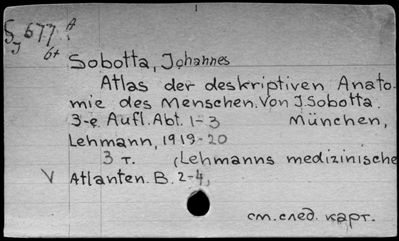 § 677 A
I 6+
Sobotta, Johannes
Atlas der deskriptiven Anato-
mie des Menschen. Von J. Sobotta.
3-e Aufl. Abt. 1-3 München,
Lehmann, 1919-20
3 т. (Lehmanns medizinische
V Atlanten. B. 2-4)
см. след. карт.